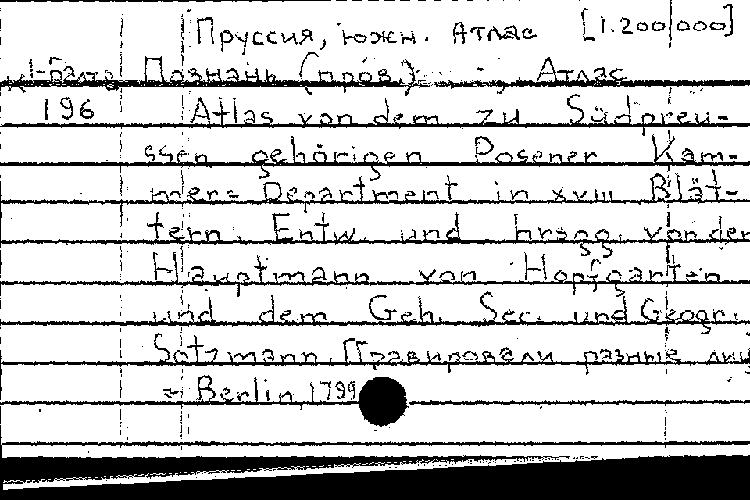 Пруссия, южн. Атлас [1:200 000]
Познань (пров.) -, Атлас
196 Atlas von dem zu Südpreu-
ssen gehörigen Posener Kam-
mer= Department in XVIII Blät-
tern. Entw. und hrsgg. von der
Hauptmann von Hopfgarten
und dem Geh. Sec. und Geogr.
Sotzmann. Гравировали разные лиц
- Berlin, 1799